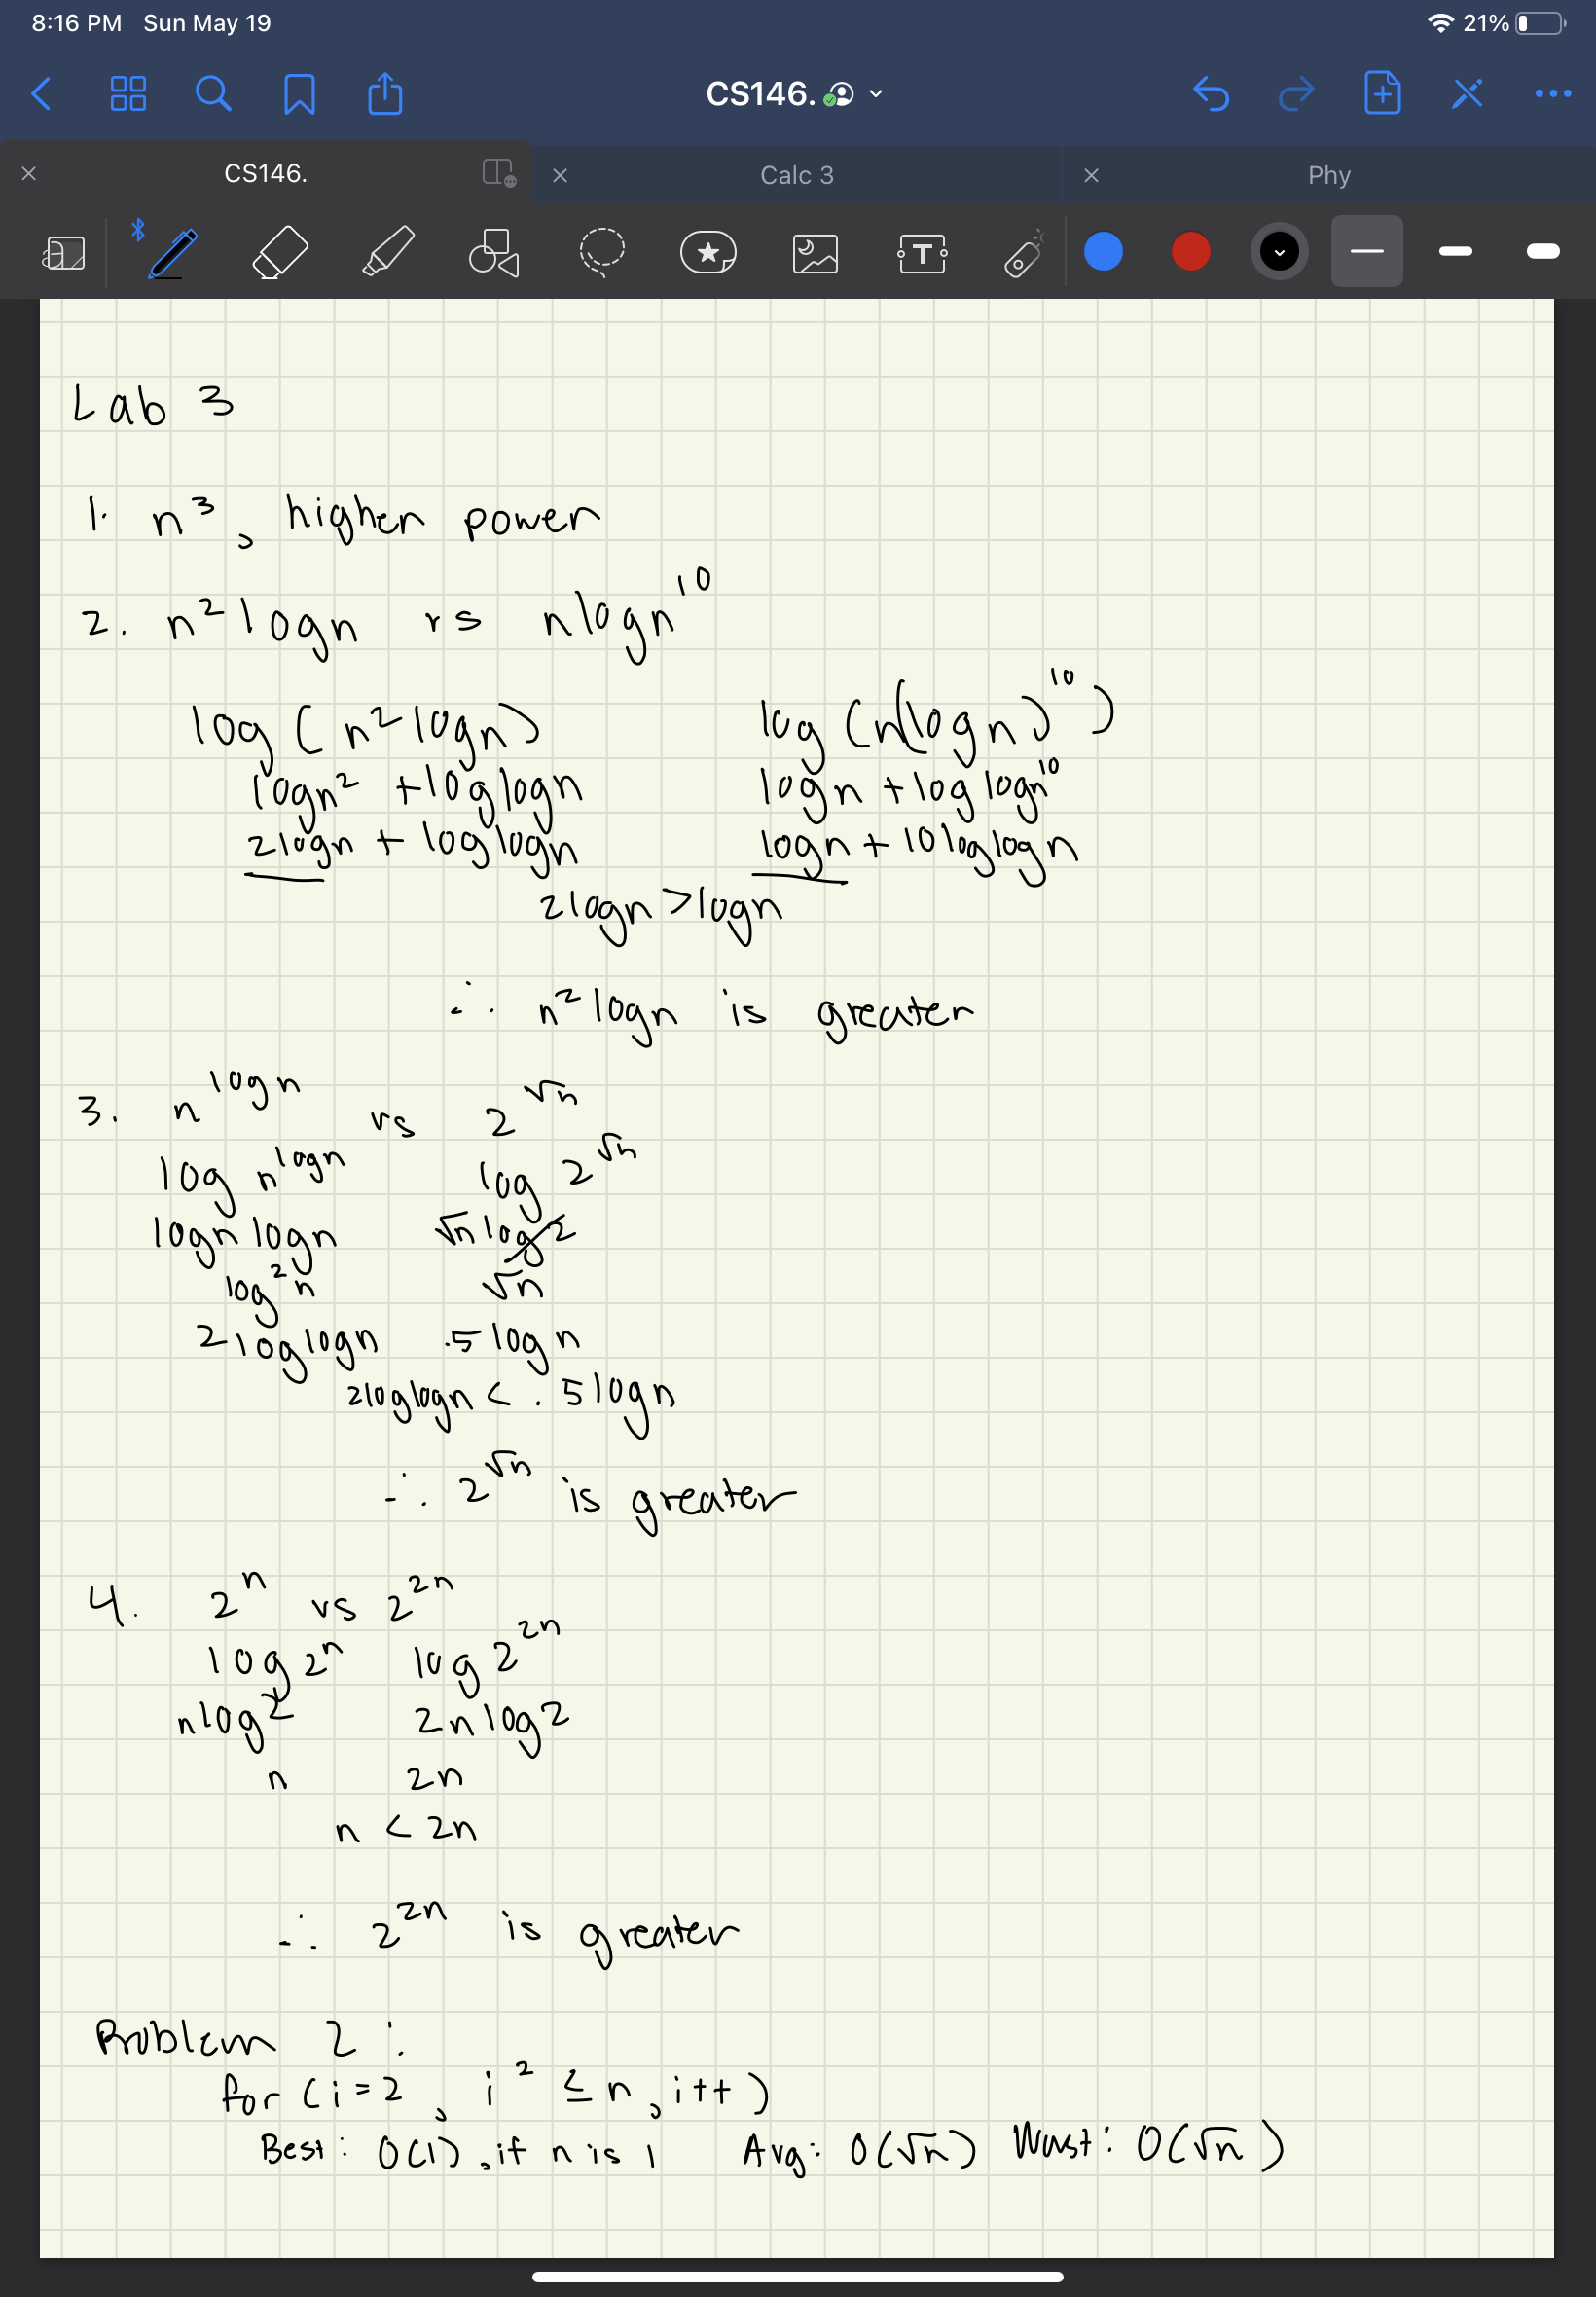 8:16 PM Sun May 19 21%
CS146.
CS146. Calc 3 Phy
T
Lab 3
1. n³, higher power
2. n² logn vs nlogn¹⁰
log(n² logn) log(n(logn)¹⁰)
logn² + loglogn logn + log logn¹⁰
2logn + loglogn logn + 10loglogn
2logn > logn
∴ n² logn is greater
3. n^logn vs 2^√n
log n^logn log 2^√n
logn logn √n log 2
log²n √n
2loglogn .5logn
2loglogn < .5logn
∴ 2^√n is greater
4. 2ⁿ vs 2²ⁿ
log 2ⁿ log 2²ⁿ
nlog2 2nlog2
n 2n
n < 2n
∴ 2²ⁿ is greater
Problem 2:
for (i=2, i² ≤ n, i++)
Best: O(1), if n is 1 Avg: O(√n) Worst: O(√n)